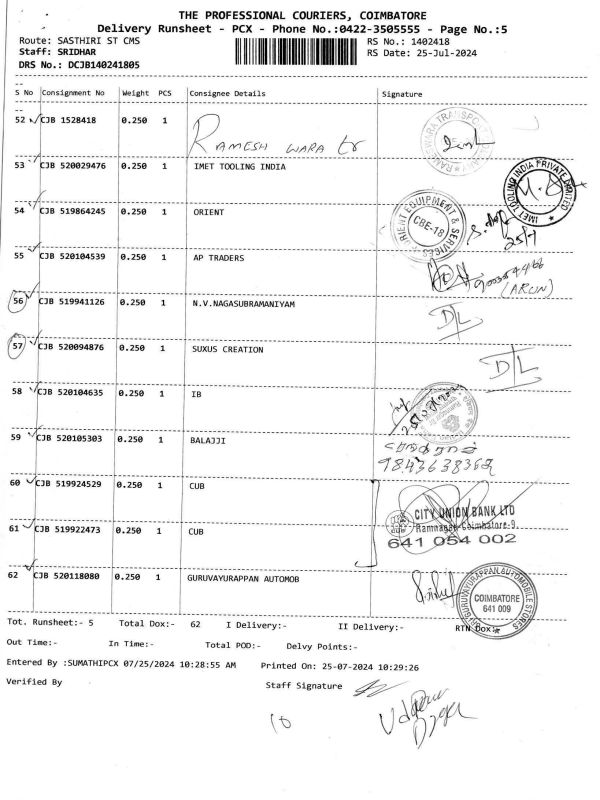 THE PROFESSIONAL COURIERS, COIMBATORE
Delivery Runsheet - PCX - Phone No.:0422-3505555 - Page No.:5
Route: SASTHIRI ST CMS RS No.: 1402418
Staff: SRIDHAR RS Date: 25-Jul-2024
DRS No.: DCJB140241805
S No Consignment No Weight PCS Consignee Details Signature
52 CJB 1528418 0.250 1 RAMESH WARA tr
53 CJB 520029476 0.250 1 IMET TOOLING INDIA IMET TOOLING INDIA PRIVATE LIMITED
54 CJB 519864245 0.250 1 ORIENT ORIENT EQUIPMENT & SERVICES CBE-18 25/7
55 CJB 520104539 0.250 1 AP TRADERS
(ARUN)
56 CJB 519941126 0.250 1 N.V.NAGASUBRAMANIYAM D/L
57 CJB 520094876 0.250 1 SUXUS CREATION D/L
58 CJB 520104635 0.250 1 IB
59 CJB 520105303 0.250 1 BALAJJI
60 CJB 519924529 0.250 1 CUB
CITY UNION BANK LTD
Ramnagar Coimbatore-9.
61 CJB 519922473 0.250 1 CUB
641 054 002
62 CJB 520118080 0.250 1 GURUVAYURAPPAN AUTOMOB GURUVAYURAPPAN AUTOMOBILE STORES COIMBATORE 641 009
Tot. Runsheet:- 5 Total Dox:- 62 I Delivery:- II Delivery:- RTN Dox:-
Out Time:- In Time:- Total POD:- Delvy Points:-
Entered By :SUMATHIPCX 07/25/2024 10:28:55 AM Printed On: 25-07-2024 10:29:26
Verified By Staff Signature
10